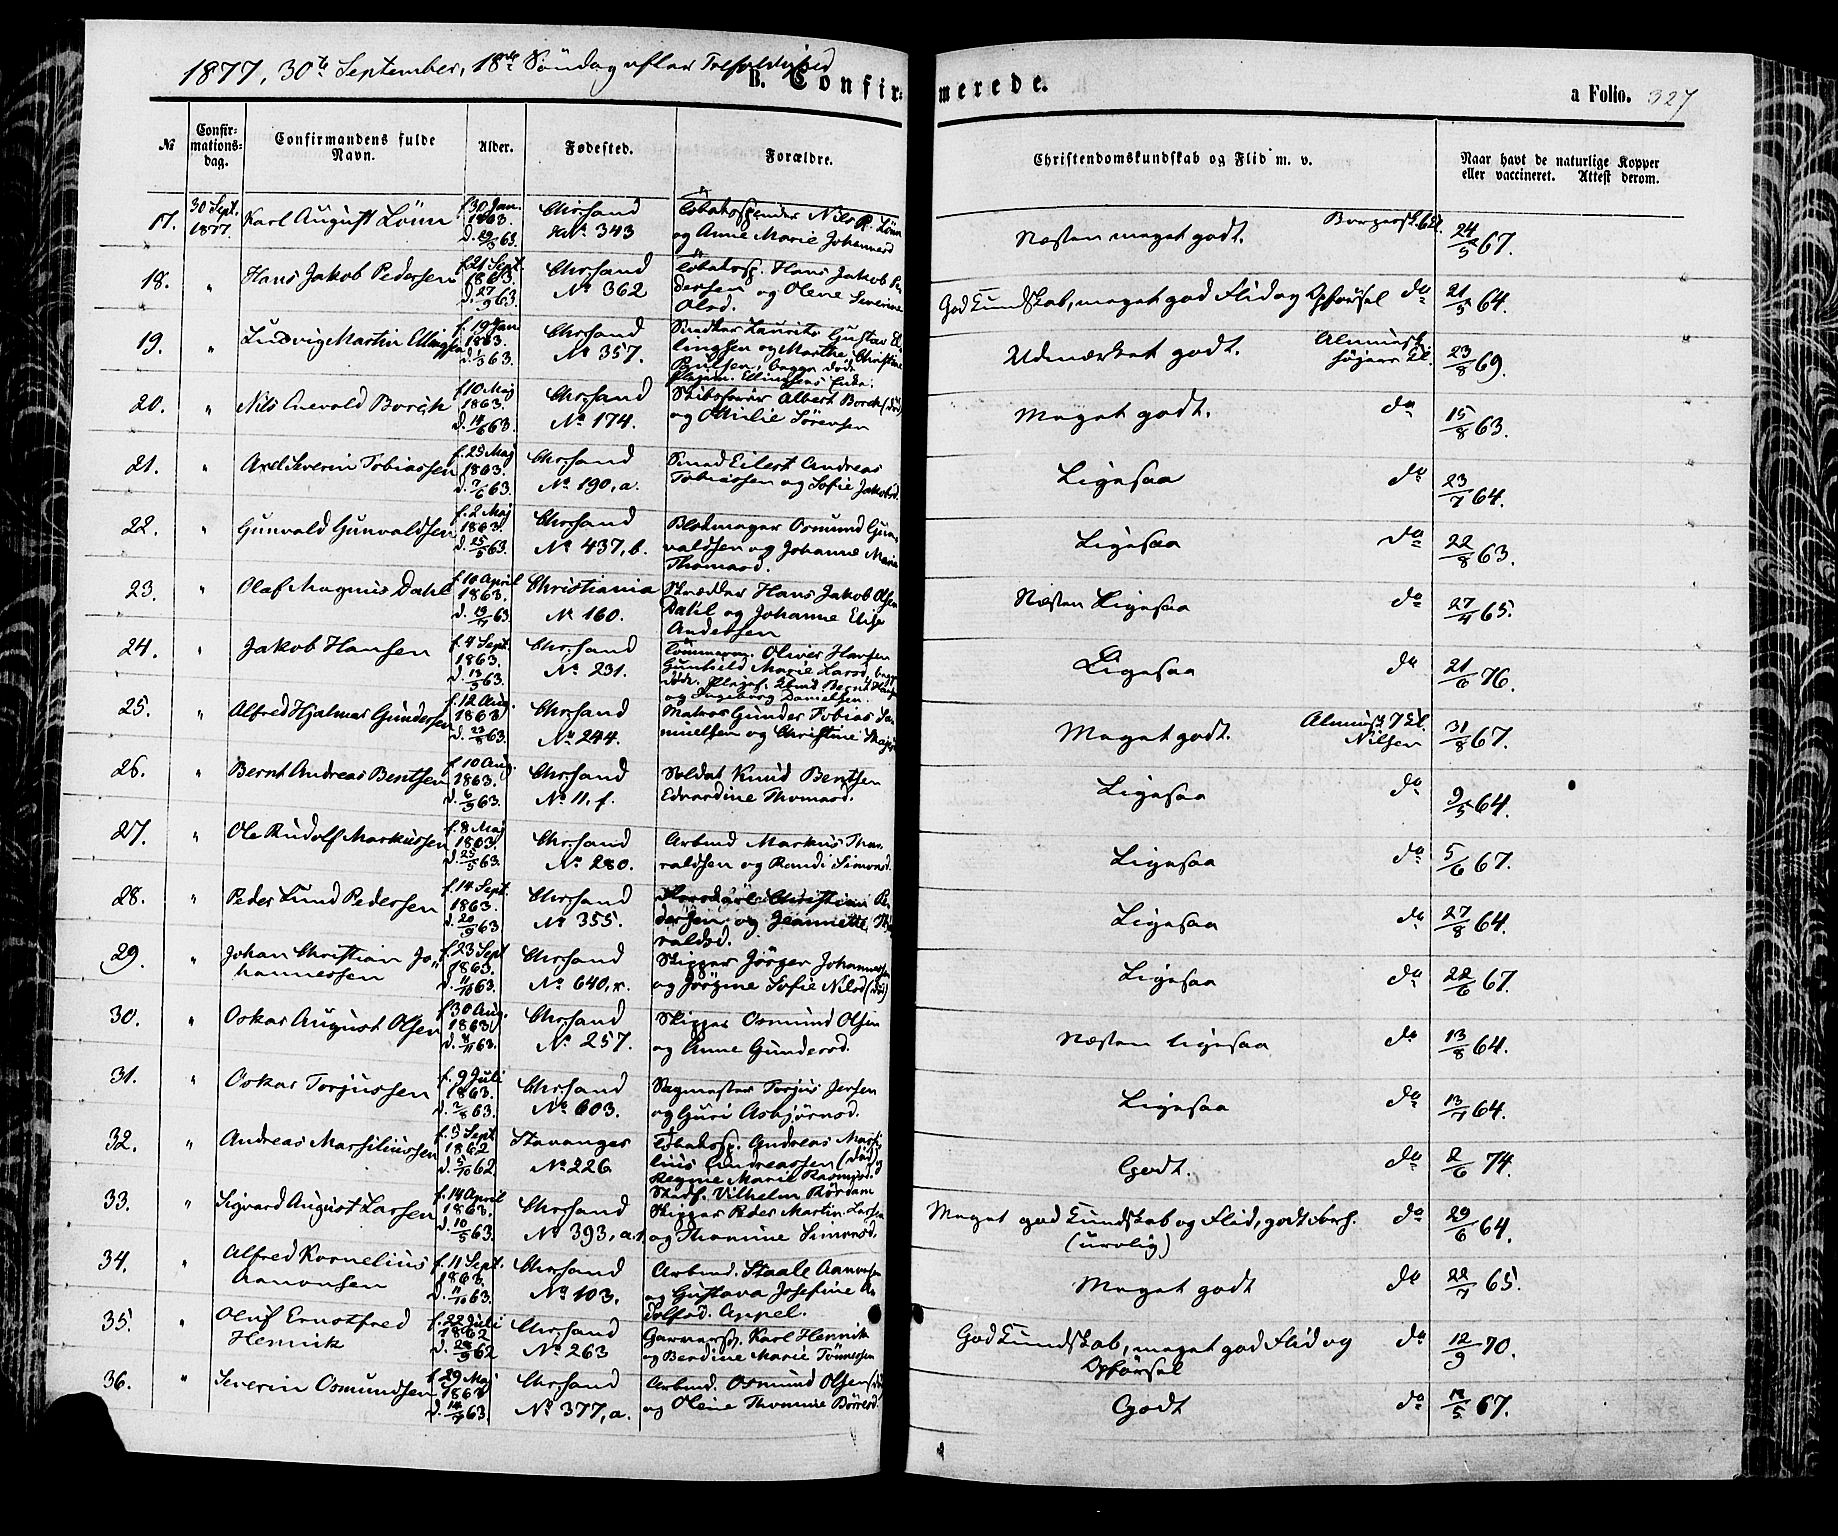 1877, 30te September, 18de Søndag efter Trefoldighed
B. Confirmerede.
a Folio. 327
№
Confirmationsdag.
Confirmandens fulde Navn.
Alder.
Fødested.
Forældre.
Christendomskundskab og Flid m. v.
Naar havt de naturlige Kopper eller vaccineret. Attest derom.
17. 30 Sept. 1877. Karl August Lönn f. 30 Jan. 1863. Chrsand № 343 Tobakssp Nils R. Lönn og Anne Marie Johannesd Næsten meget godt. Borgersk. 6 Kl. 24/5 67.
18. " Hans Jakob Pedersen f. 21 Sept. 1863. d. 27/9 63. Chrsand № 362 Tobaksp. Hans Jakob Pedersen og Olene Severine Olsd. God Kundskab, meget god Flid og Opförsel do 21/5 64.
19. " Ludvig Martin Ellingsen f. 19 Jan 1863. d. 1/3 63. Chrsand № 357. Snedker Laurits Gustav Ellingsen og Marthe Christine begge døde Plejem. Ellingsens Enke. Udmærket godt. Almuesk. højere Kl. 23/8 69.
20. " Nils Enevold Borck f. 10 Maj 1863. d. 14/6 63. Chrsand № 174. Skibsförer Albert Borck (död) og Othilie Sörensen Meget godt. do 15/8 63.
21. " Axel Severin Tobiassen f. 23 Maj 1863. d. 7/6 63. Chrsand № 190, a. Smed Eilert Andreas Tobiassen og Sofie Jakobsd. Ligesaa do 23/7 64.
22. " Gunvald Gunvaldsen f. 2 Maj 1863. d. 25/5 63. Chrsand № 437, b. Blokmager Osmund Gunvaldsen og Johanne Marie Thomasd. Ligesaa do 22/8 63.
23. " Olaf Magnus Dahl f. 10 April 1863. d. 19/7 63. Christiania № 160. Skrædder Hans Jakob Olsen Dahl og Johanne Elise Andersen Næsten Ligesaa do 27/4 65.
24. " Jakob Hansen f. 4 Sept. 1863. d. 13/9 63. Chrsand № 231. Tömmerm. Oliver Hansen Gunhild Marie Larsd, begge døde. Plejef. Bernt Hansen og Ingeborg Danielsen. Ligesaa do 21/6 76.
25. " Alfred Hjalmar Gundersen f. 12 Aug. 1863 d. 23/8 63. Chrsand № 244. Matros Gunder Tobias Samuelsen og Christine Meget godt. Almuesk 7 Kl. Nilsen 31/8 67.
26. " Bernt Andreas Bentsen f. 10 Aug. 1863. d. 6/9 63. Chrsand № 11, f. Soldat Knud Bentsen Edvardine Thomasd. Ligesaa do 9/5 64.
27. " Ole Rudolf Markussen f. 8 Maj 1863. d. 25/5 63. Chrsand № 280. Arbmd Markus Tharaldsen og Randi Simonsd. Ligesaa do 5/6 67.
28. " Peder Lund Pedersen f. 14 Sept. 1863. d. 20/9 63 Chrsand № 355. Christian Pedersen og Jeannette Tharaldsd. Ligesaa do 27/8 64.
29. " Johan Christian Johannessen f. 23 Sept 1863. d. 11/10 63. Chrsand № 640, r. Skipper Jörgen Johannessen og Jörgine Sofie Nilsd (död) Ligesaa do 22/6 67.
30. " Oskar August Olsen f. 30 Aug. 1863 d. 8/11 63. Chrsand № 257. Skipper Osmund Olsen og Anne Gundersd. Næsten ligesaa do 13/8 64.
31. " Oskar Torjussen f. 9 Juli 1863. d. 2/8 63. Chrsand № 603. Sagmester Torjus Jersen og Guri Asbjørnsd. Ligesaa do 13/7 64.
32. " Andreas Marsiliussen f. 5 Sept 1862 d. 5/10 62 Stavanger № 226 Tobaksp. Andreas Marsilius Andreassen (död) Regine Marie Rasmusd. Stedf. Vilhelm Rördam Godt. do 2/6 74.
33. " Sigvard August Larsen f. 14 April 1863. d. 10/5 63. Chrsand № 393, a. Skipper Peder Martin Larsen og Thomine Simonsd. Meget god Kundskab og Flid, godt Forh. (urolig) do 29/6 64.
34. " Alfred Kornelius Aanonsen f. 11 Sept. 1863. d. 11/10 63. Chrsand № 103. Arbmd. Staale Aanonsen og Gustava Josefine Adolfsd. Appel. Meget godt do 22/7 65.
35. " Oluf Ernstfred Henrik f. 22 Juli 1862 d. 28/9 62 Chrsand № 263 Garversv. Karl Henrik og Berdine Marie Tönnessen God Kundskab, meget god Flid og Opförsel do 12/9 70.
36. " Severin Osmundsen f. 29 Maj d. 14/7 63. Chrsand № 377, a. Arbmd. Osmund Olsen og Olene Thomine Börresd. Godt do 12/5 67.